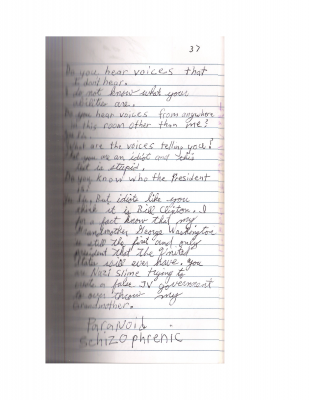 37
Do you hear voices that
I don't hear.
I do not know what your
abilities are.
Do you hear voices from anywhere
in this room other than me?
What are the voices telling you?
That you are an idiot and this
test is stupid.
Do you know who the President
is?
but idiots like you
think it is Bill Clinton. I
for a fact know that my
Grandmother George Washington
is still the first and only
president that the United
States will ever have. you
are Nazi slime trying to
create a false TV government
to over throw my
Grandmother.
Paranoid
Schizophrenic